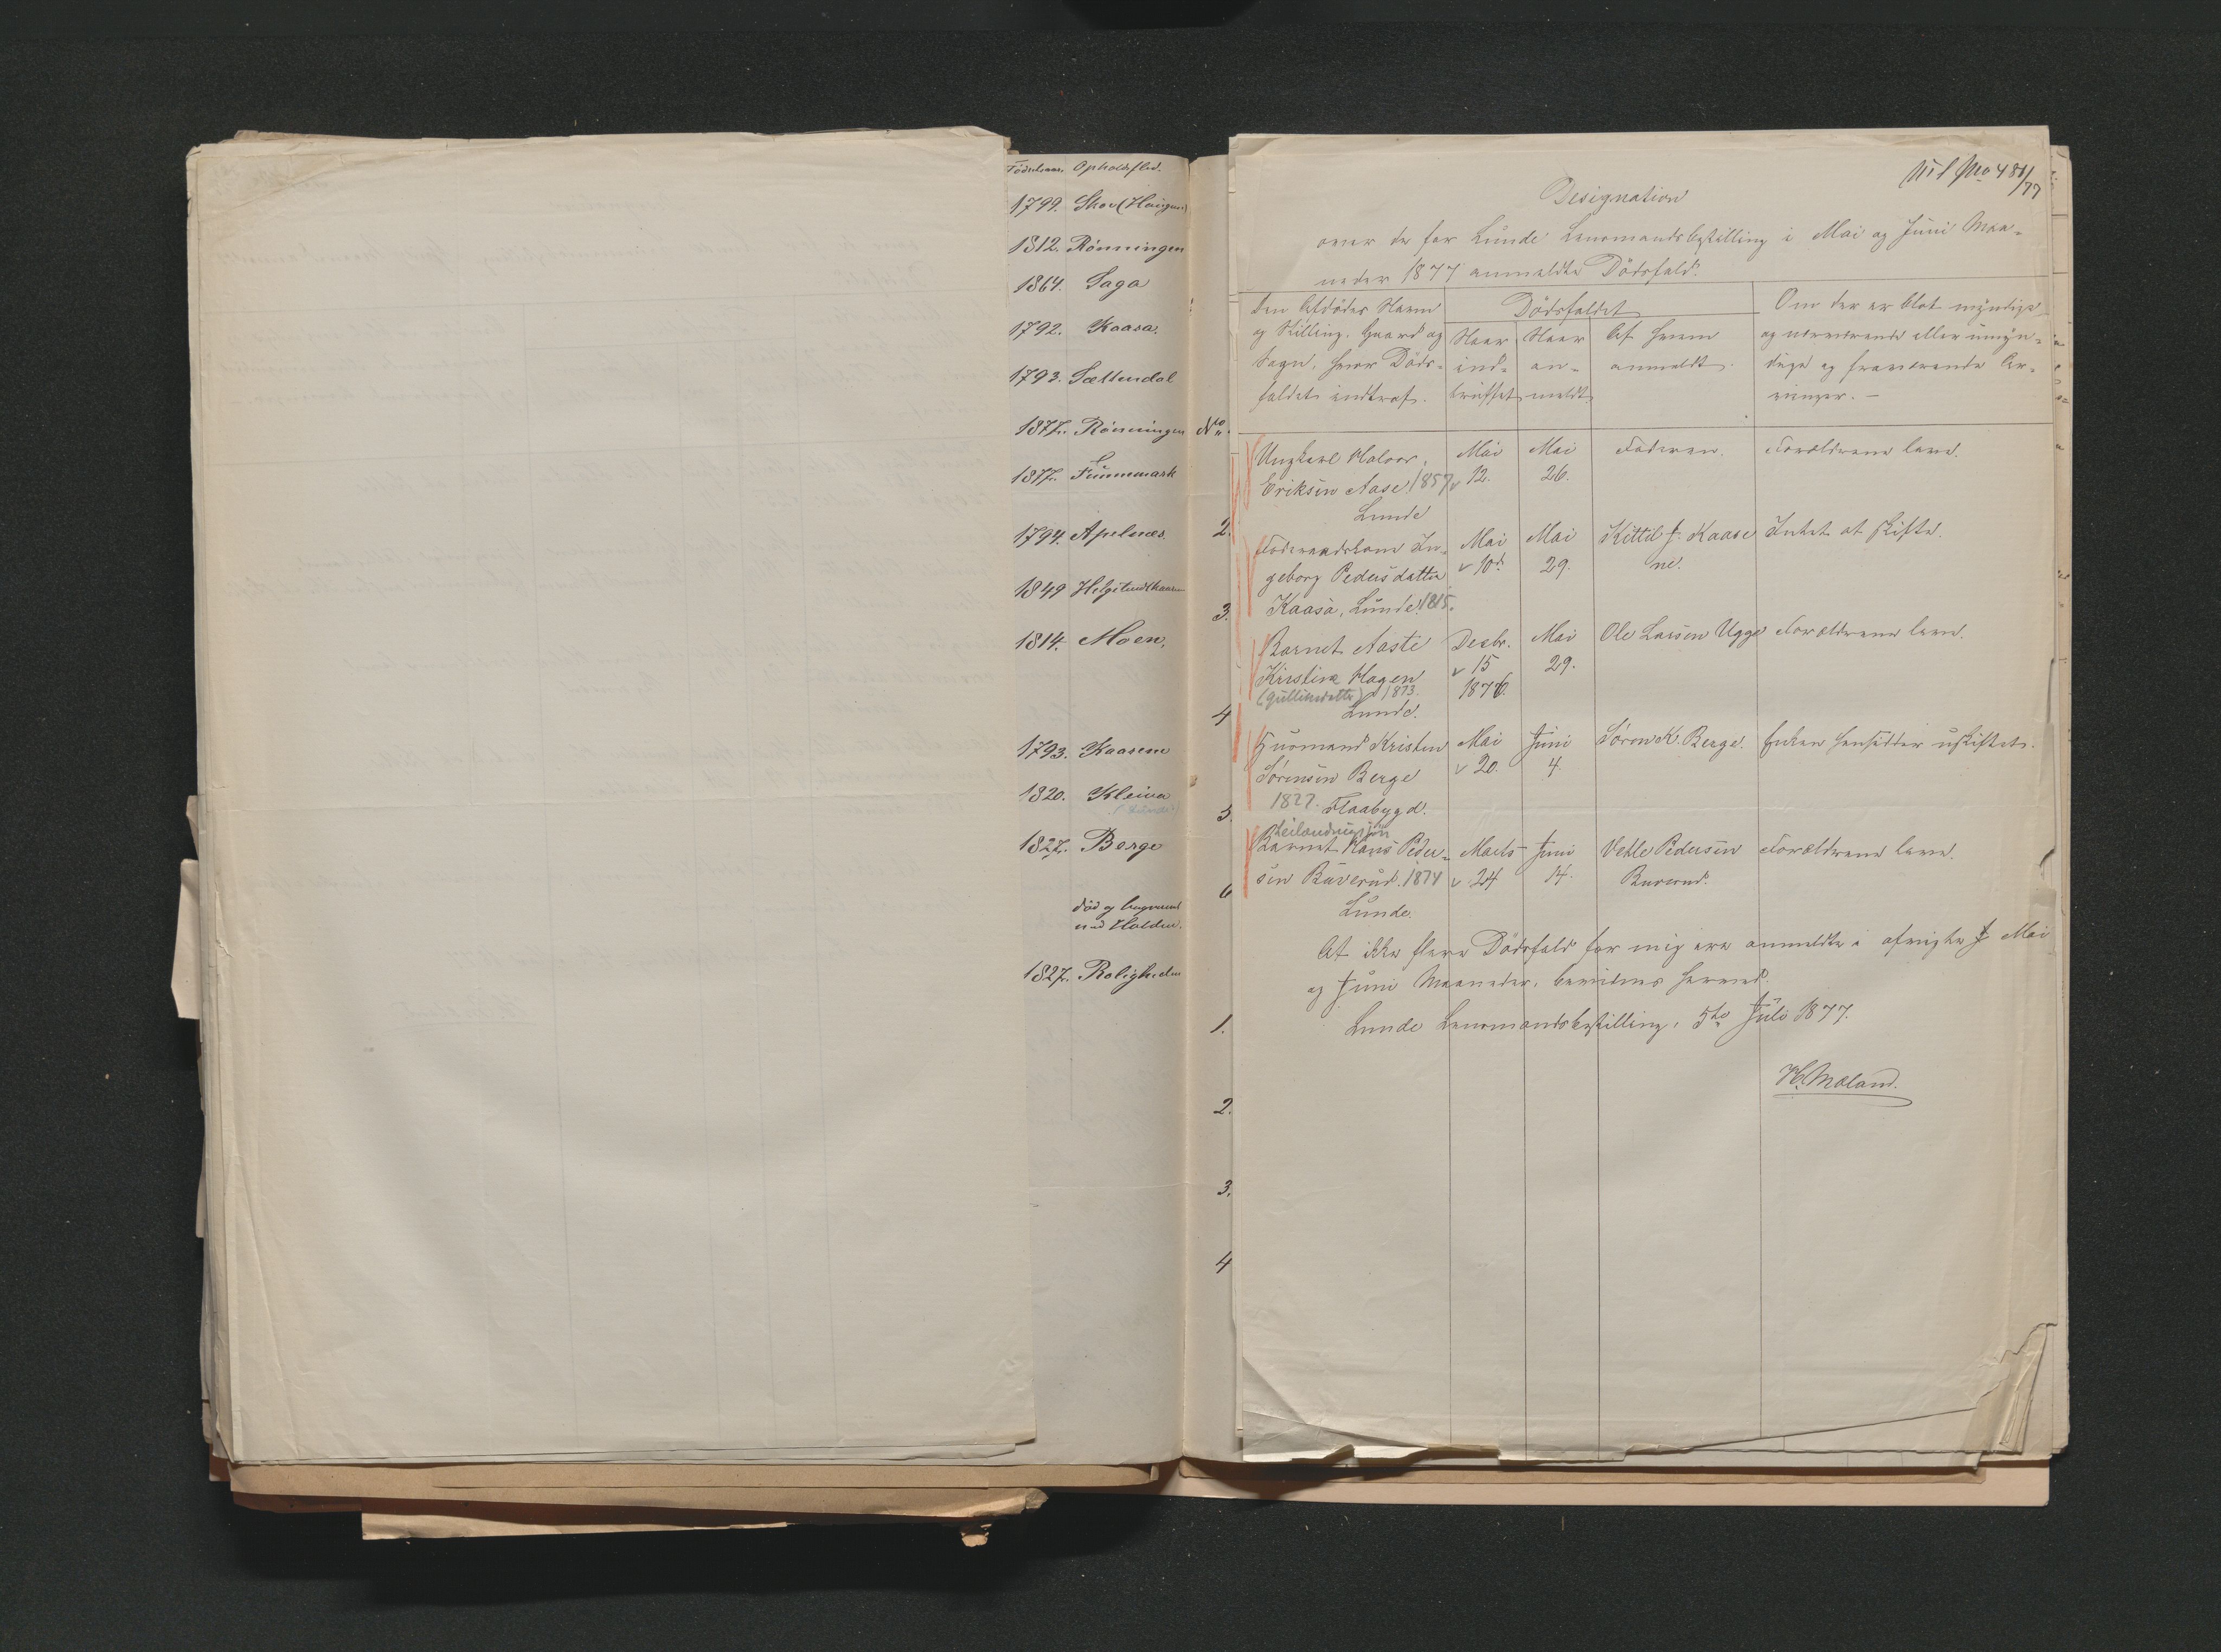 Fødselsaar. Opholdssted.
1799. Skoe (Haugen)
1812. Rönningen
1864. Saga
1792. Kaasa.
1793. Sættendal
1877. Rönningen
1877. Finnemark
1794. Apelnæs.
1849 Helgetveidtkaasen
1814. Moen,
1793. Kaasene
1820. Kleiva
1827. Berge
död og begravet
ved Holden.
1827. Roligheden
No.
2.
3.
4
5.
6
1.
2.
3.
4
Til No 481/77
Designation
over de for Lunde Lensmandsbestilling i Mai og Juni Maa-
neder 1877 anmeldte Dödsfald.
Den Afdödes Navn
og Stilling, Gaard og
Sogn, hvor Döds-
faldet indtraf.
Dödsfaldet
Naar
ind-
truffet
Naar
an-
meldt
Af hvem
anmeldt.
Om der er blot myndige
og nærværende eller umyn-
dige og fraværende Ar-
vinger. -
Ungkarl Halvor
Eriksen Aase 1857
Lunde
Mai
12.
Mai
26.
Faderen.
Forældrene leve.
Föderaadskone In-
geborg Pedersdatter
Kaasa, Lunde. 1815.
Mai
10de
Mai
29.
Kittil J. Kaase
ne.
Intet at skifte.
Barnet Aaste
Kirstine Hagen
(Gulliksdatter) 1873.
Lunde.
Decbr.
15
1876.
Mai
29.
Ole Larsen Ugge
Forældrene leve.
Husmand Kristen
Sörensen Berge
1827. Flaabygd.
Mai
20.
Juni
4.
Sören K. Berge.
Enken hensidder i uskiftet.
Leilændingssön
Barnet Hans Peder-
sen Buverud. 1874
Lunde.
Marts
24
Juni
14.
Vetle Pedersen
Buverud.
Forældrene leve.
At ikke flere Dödsfald for mig ere anmeldte i afvigte Mai
og Juni Maaneder, bevidnes herved.
Lunde Lensmandsbestilling, 5te Juli 1877.
H. Moland.